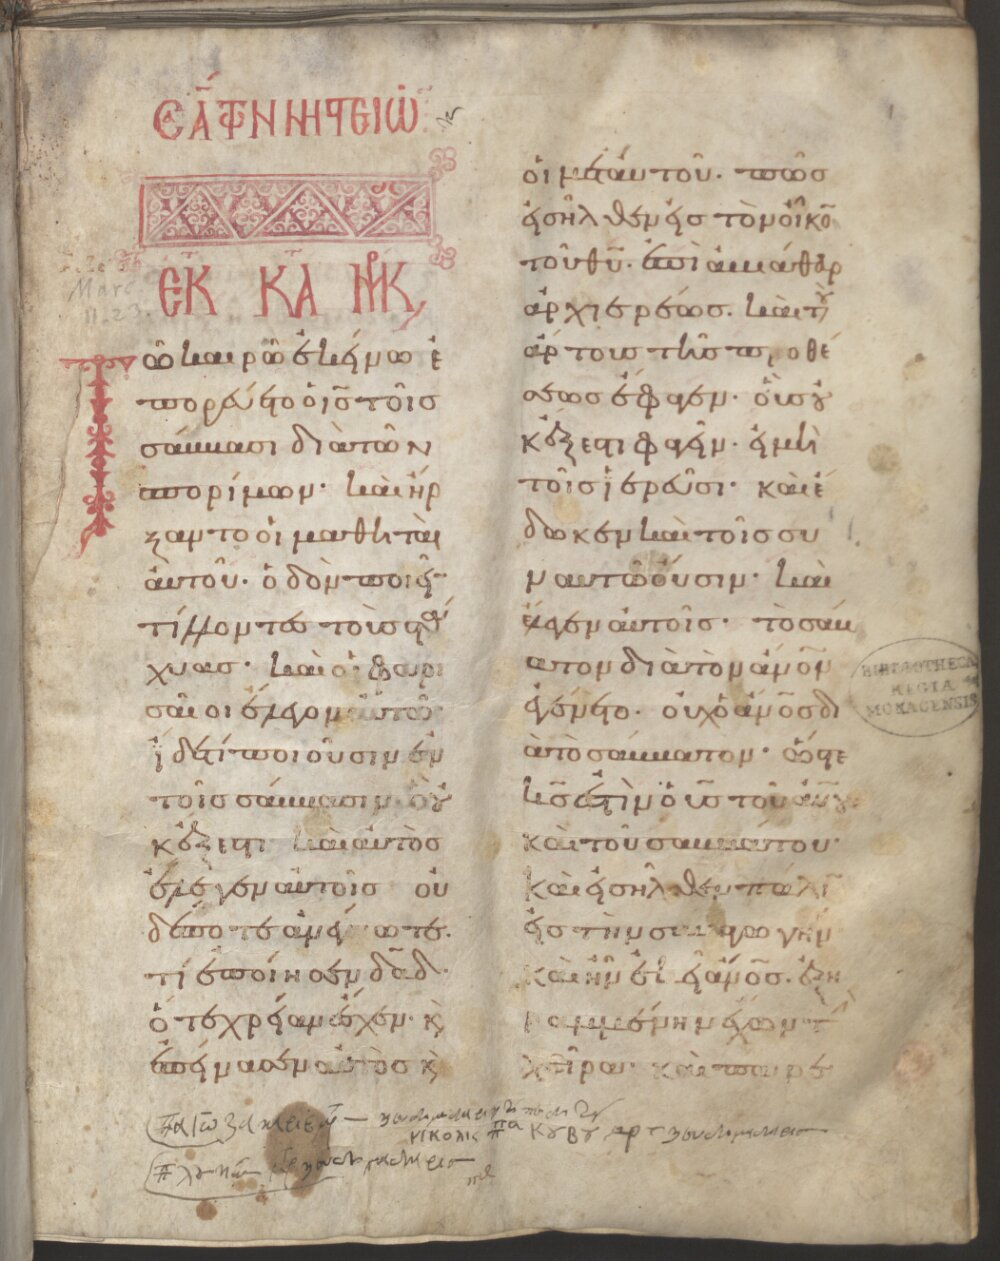 ΣΑ Τ ΝΗΣΤΕΙΩ
ΕΚ ΚΑΤ ΜΚ
Τῶ καιρῶ ἐκείνω ἐ
πορεύετο ὁ ις τοῖς
σάββασι διὰ τῶν
σπορίμων· καὶ ἤρ
ξαντο οἱ μαθηταὶ
αὐτοῦ· ὁδὸν ποιεῖ
τίλλοντες τοὺς στά
χυας· καὶ οἱ φαρι
σαῖοι ἔλεγον αὐτῶ·
ἴδε τί ποιοῦσιν ἐν
τοῖς σάββασιν ὃ οὐ
κ ἔξεστι καὶ αὐτὸς
ἔλεγεν αὐτοῖς οὐ
δέποτε ἀνέγνωτε·
τί ἐποίησεν δαδ·
ὅτε χρείαν ἔσχεν· κ
ἐπείνασεν αὐτὸς κ
οἱ μετ αὐτοῦ· πῶς
εἰσῆλθεν εἰς τὸν οἶκο
τοῦ θυ· ἐπὶ ἀβιάθαρ
ἀρχιερέως· καὶ τοὺ
ἄρτους τῆς προθέ
σεως ἔφαγεν· οὓς οὐ
κ ἔξεστι φαγεῖν· εἰ μὴ
τοῖς ἱερεῦσι· καὶ ἔ
δωκεν καὶ τοῖς συ
ν αὐτῶ οὖσιν· καὶ
ἔλεγεν αὐτοῖς· τὸ σάβ
βατον διὰ τὸν ἄνον
ἐγένετο· οὐχ ὁ ἄνος δι
ὰ τὸ σάββατον· ὥστε
κς ἐστὶν ὁ υς τοῦ ανου
καὶ τοῦ σαββάτου·
καὶ εἰσῆλθεν πάλι
εἰς τὴν συναγωγήν
καὶ ἦν ἐκεῖ ανος· ἐξη
ραμμένην ἔχων τ
χεῖρα· καὶ παρε
Marc
II. 23.
BIBLIOTHECA
REGIA
MONACENSIS